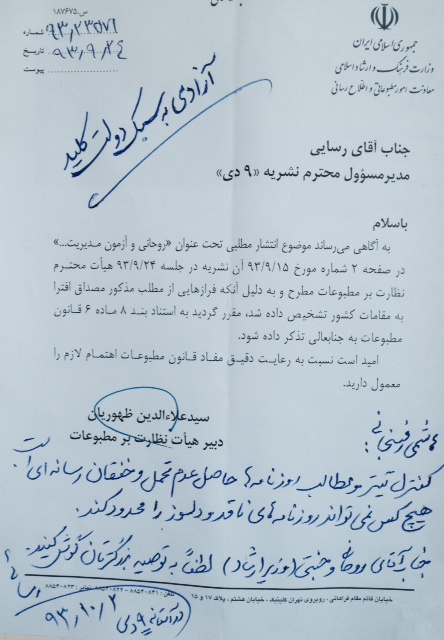 س: ۱۸۷۶۷۵
شماره ۹۳/۲۳۵۷۱
تاریخ ۹۳/۹/۲۴
پیوست
جمهوری اسلامی ایران
وزارت فرهنگ و ارشاد اسلامی
معاونت امور مطبوعاتی و اطلاع رسانی
آزادی به سبک دولت کلید
جناب آقای رسایی
مدیرمسؤول محترم نشریه «۹ دی»
باسلام
به آگاهی می‌رساند موضوع انتشار مطلبی تحت عنوان «روحانی و آزمون مدیریت...»
در صفحه ۲ شماره مورخ ۹۳/۹/۱۵ آن نشریه در جلسه ۹۳/۹/۲۴ هیأت محترم
نظارت بر مطبوعات مطرح و به دلیل آنکه فرازهایی از مطلب مذکور مصداق افترا
به مقامات کشور تشخیص داده شد، مقرر گردید به استناد بند ۸ ماده ۶ قانون
مطبوعات به جنابعالی تذکر داده شود.
امید است نسبت به رعایت دقیق مفاد قانون مطبوعات اهتمام لازم را
معمول دارید.
سیدعلاءالدین ظهوریان
دبیر هیأت نظارت بر مطبوعات
هاشمی رفسنجانی:
کنترل تیتر و مطالب روزنامه‌ها حاصل عدم تحمل و خفقان رسانه‌ای است.
هیچ کس نمی‌تواند روزنامه‌های ناقد و دلسوز را محدود کند.
جناب آقای روحانی و جنتی (وزیر ارشاد) لطفاً به توصیه بزرگترتان گوش کنید.
رسایی
خیابان قائم مقام فراهانی، روبروی تهران کلینیک، خیابان هشتم، پلاک ۱۷ و ۱۵
تلفن: ۸۸۵۴۰۸۳۱ - ۸۸۵۴۰۸۲۲
در آستانه ۹ دی
۹۳/۱۰/۲